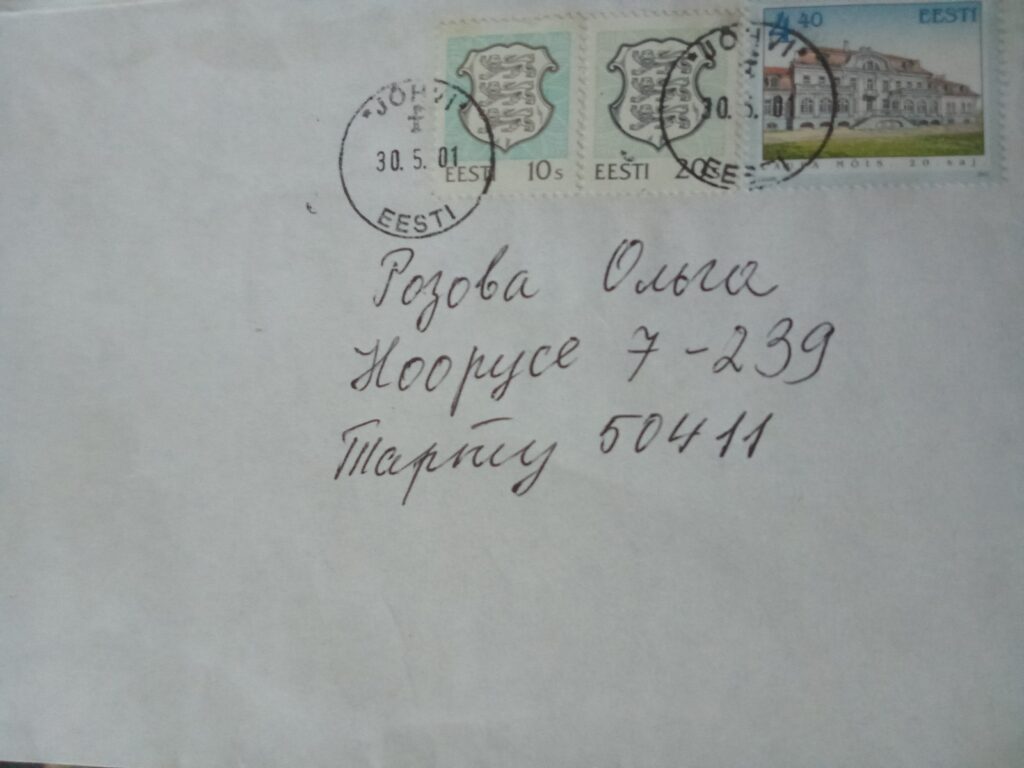 4.40 EESTI
*JÕHVI*
30.5.01
EESTI
EESTI 10s
EESTI 20s
*JÕHVI*
30.5.0
EESTI
MÕIS, 20. saj
Розова Ольга
Ноорусе 7-239
Тарту 50411